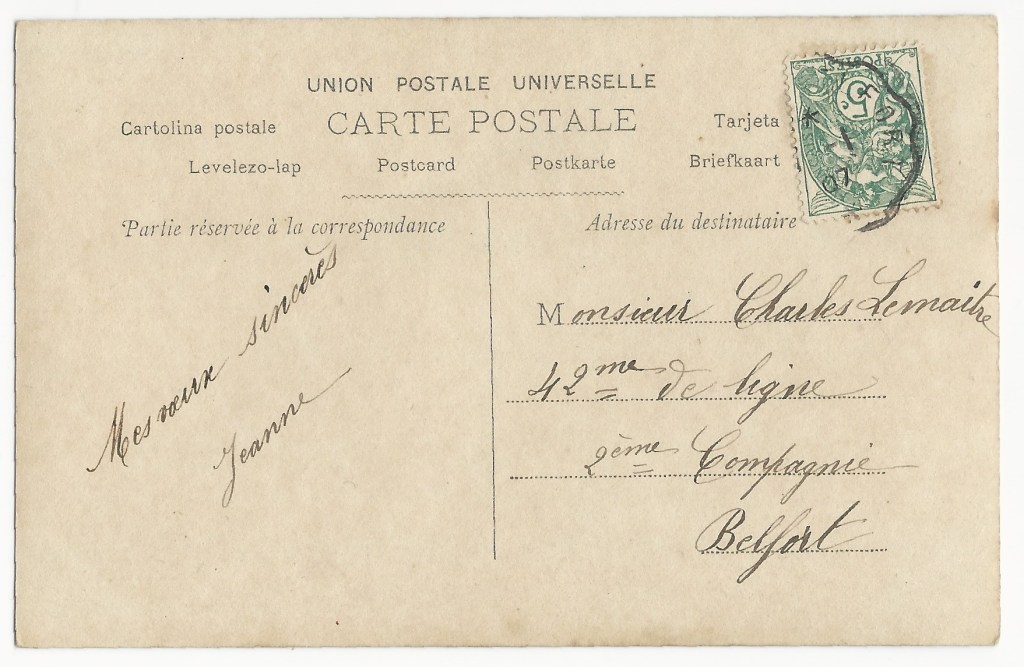 UNION POSTALE UNIVERSELLE
CARTE POSTALE
Cartolina postale
Tarjeta
Levelezo-lap
Postcard
Postkarte
Briefkaart
Partie réservée à la correspondance
Mes vœux sincères
Jeanne
Adresse du destinataire
Monsieur Charles Lemaitre
42me de ligne
2ème Compagnie
Belfort
POSTES
5c
07